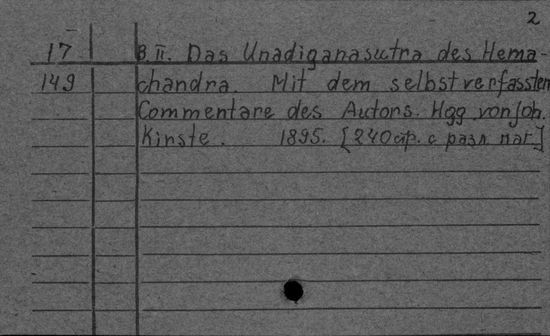 2
17 B. II. Das Unadiganasutra des Hema-
149 chandra. Mit dem selbstverfassten
Commentare des Autors. Hgg. von Joh.
Kirste. 1895. [240 стр. с разл. паг.]